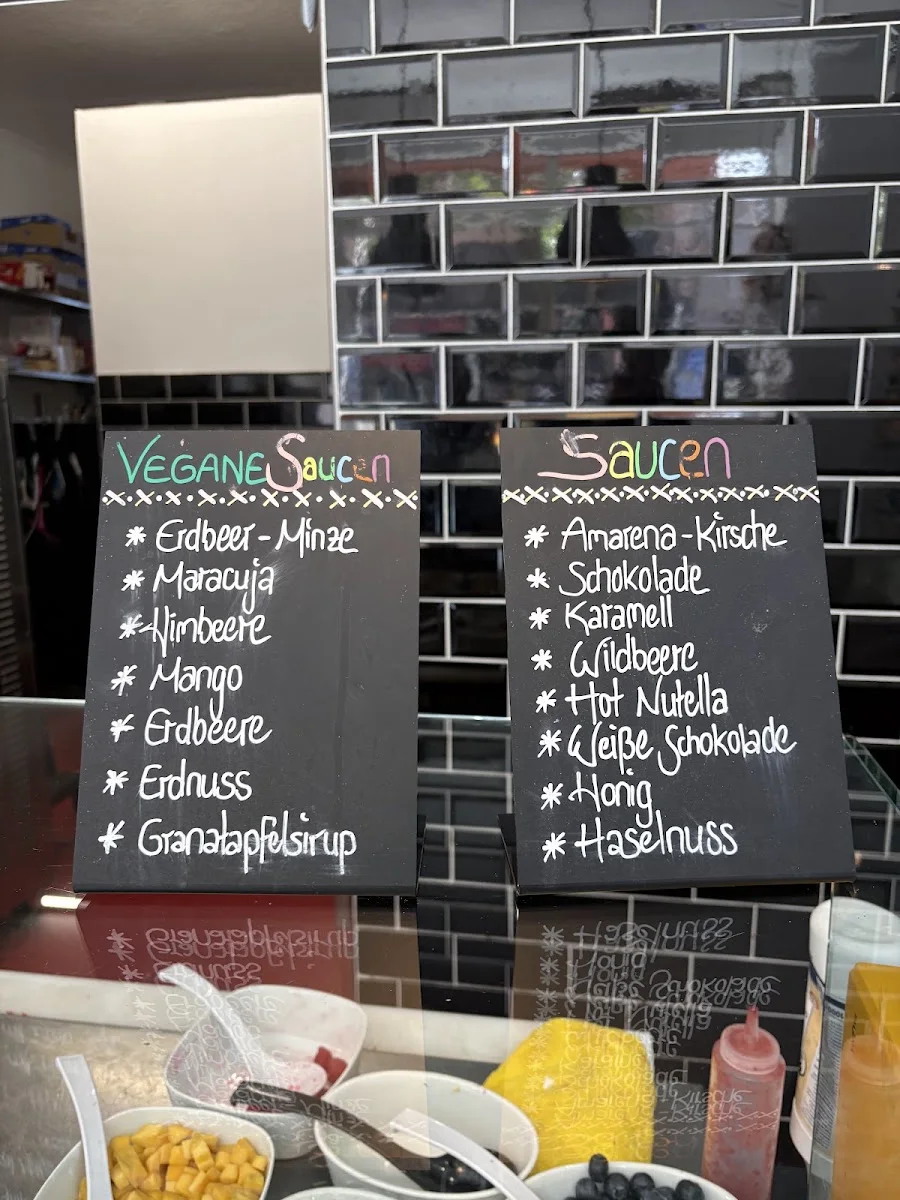 VEGANE Saucen
* Erdbeer-Minze
* Maracuja
* Himbeere
* Mango
* Erdbeere
* Erdnuss
* Granatapfelsirup
Saucen
* Amarena-Kirsche
* Schokolade
* Karamell
* Wildbeere
* Hot Nutella
* Weiße Schokolade
* Honig
* Haselnuss